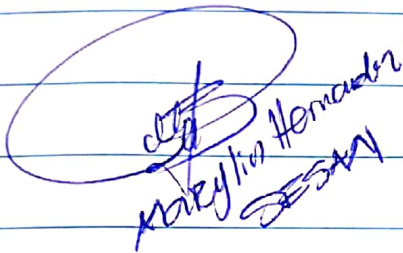 Marylin Hernandez
SESAN